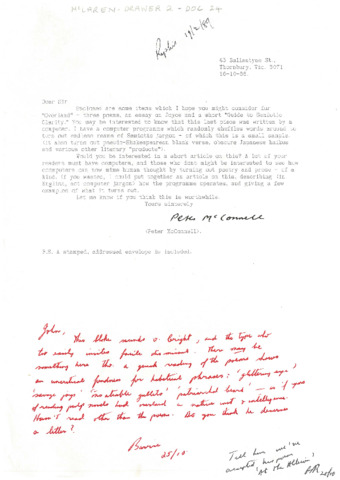 McLAREN - DRAWER 2 - DOC 24
Replied 19/2/89
62 Ballantyne St.,
Thornbury, Vic. 3071
16-10-88.
Dear Sir
Enclosed are some items which I hope you might consider for
"Overland" - three poems, an essay on Joyce and a short "Guide to Semiotic
Clarity." You may be interested to know that this last piece was written by a
computer. I have a computer programme which randomly shuffles words around to
turn out endless reams of Semiotic jargon - of which this is a small sample.
(It also turns out pseudo-Shakespearean blank verse, obscure Japanese haikus
and various other literary "products").
Would you be interested in a short article on this? A lot of your
readers must have computers, and those who don't might be interested to see how
computers can now mime human thought by turning out poetry and prose - of a
kind. If you wanted, I could put together an article on this, describing (in
English, not computer jargon) how the programme operates, and giving a few
examples of what it turns out.
Let me know if you think this is worthwhile.
Yours sincerely
Peter McConnell
(Peter McConnell).
P.S. A stamped, addressed envelope is included.
John,
This bloke sounds bright, and the type who
too easily invites facile dismissal. There may be
something here tho a quick reading of the poems shows
an uncritical fondness for habitual phrases: 'glittering eye',
'savage joys' 'insatiable gullets' 'patriarchal beard' - as if years
of reading pulp novels had overlaid a native wit & intelligence.
Haven't read other than the poems. Do you think he deserves
a letter?
Barrie
25/10
Tell him we've
accepted his poem
'At the Albion'
25/10